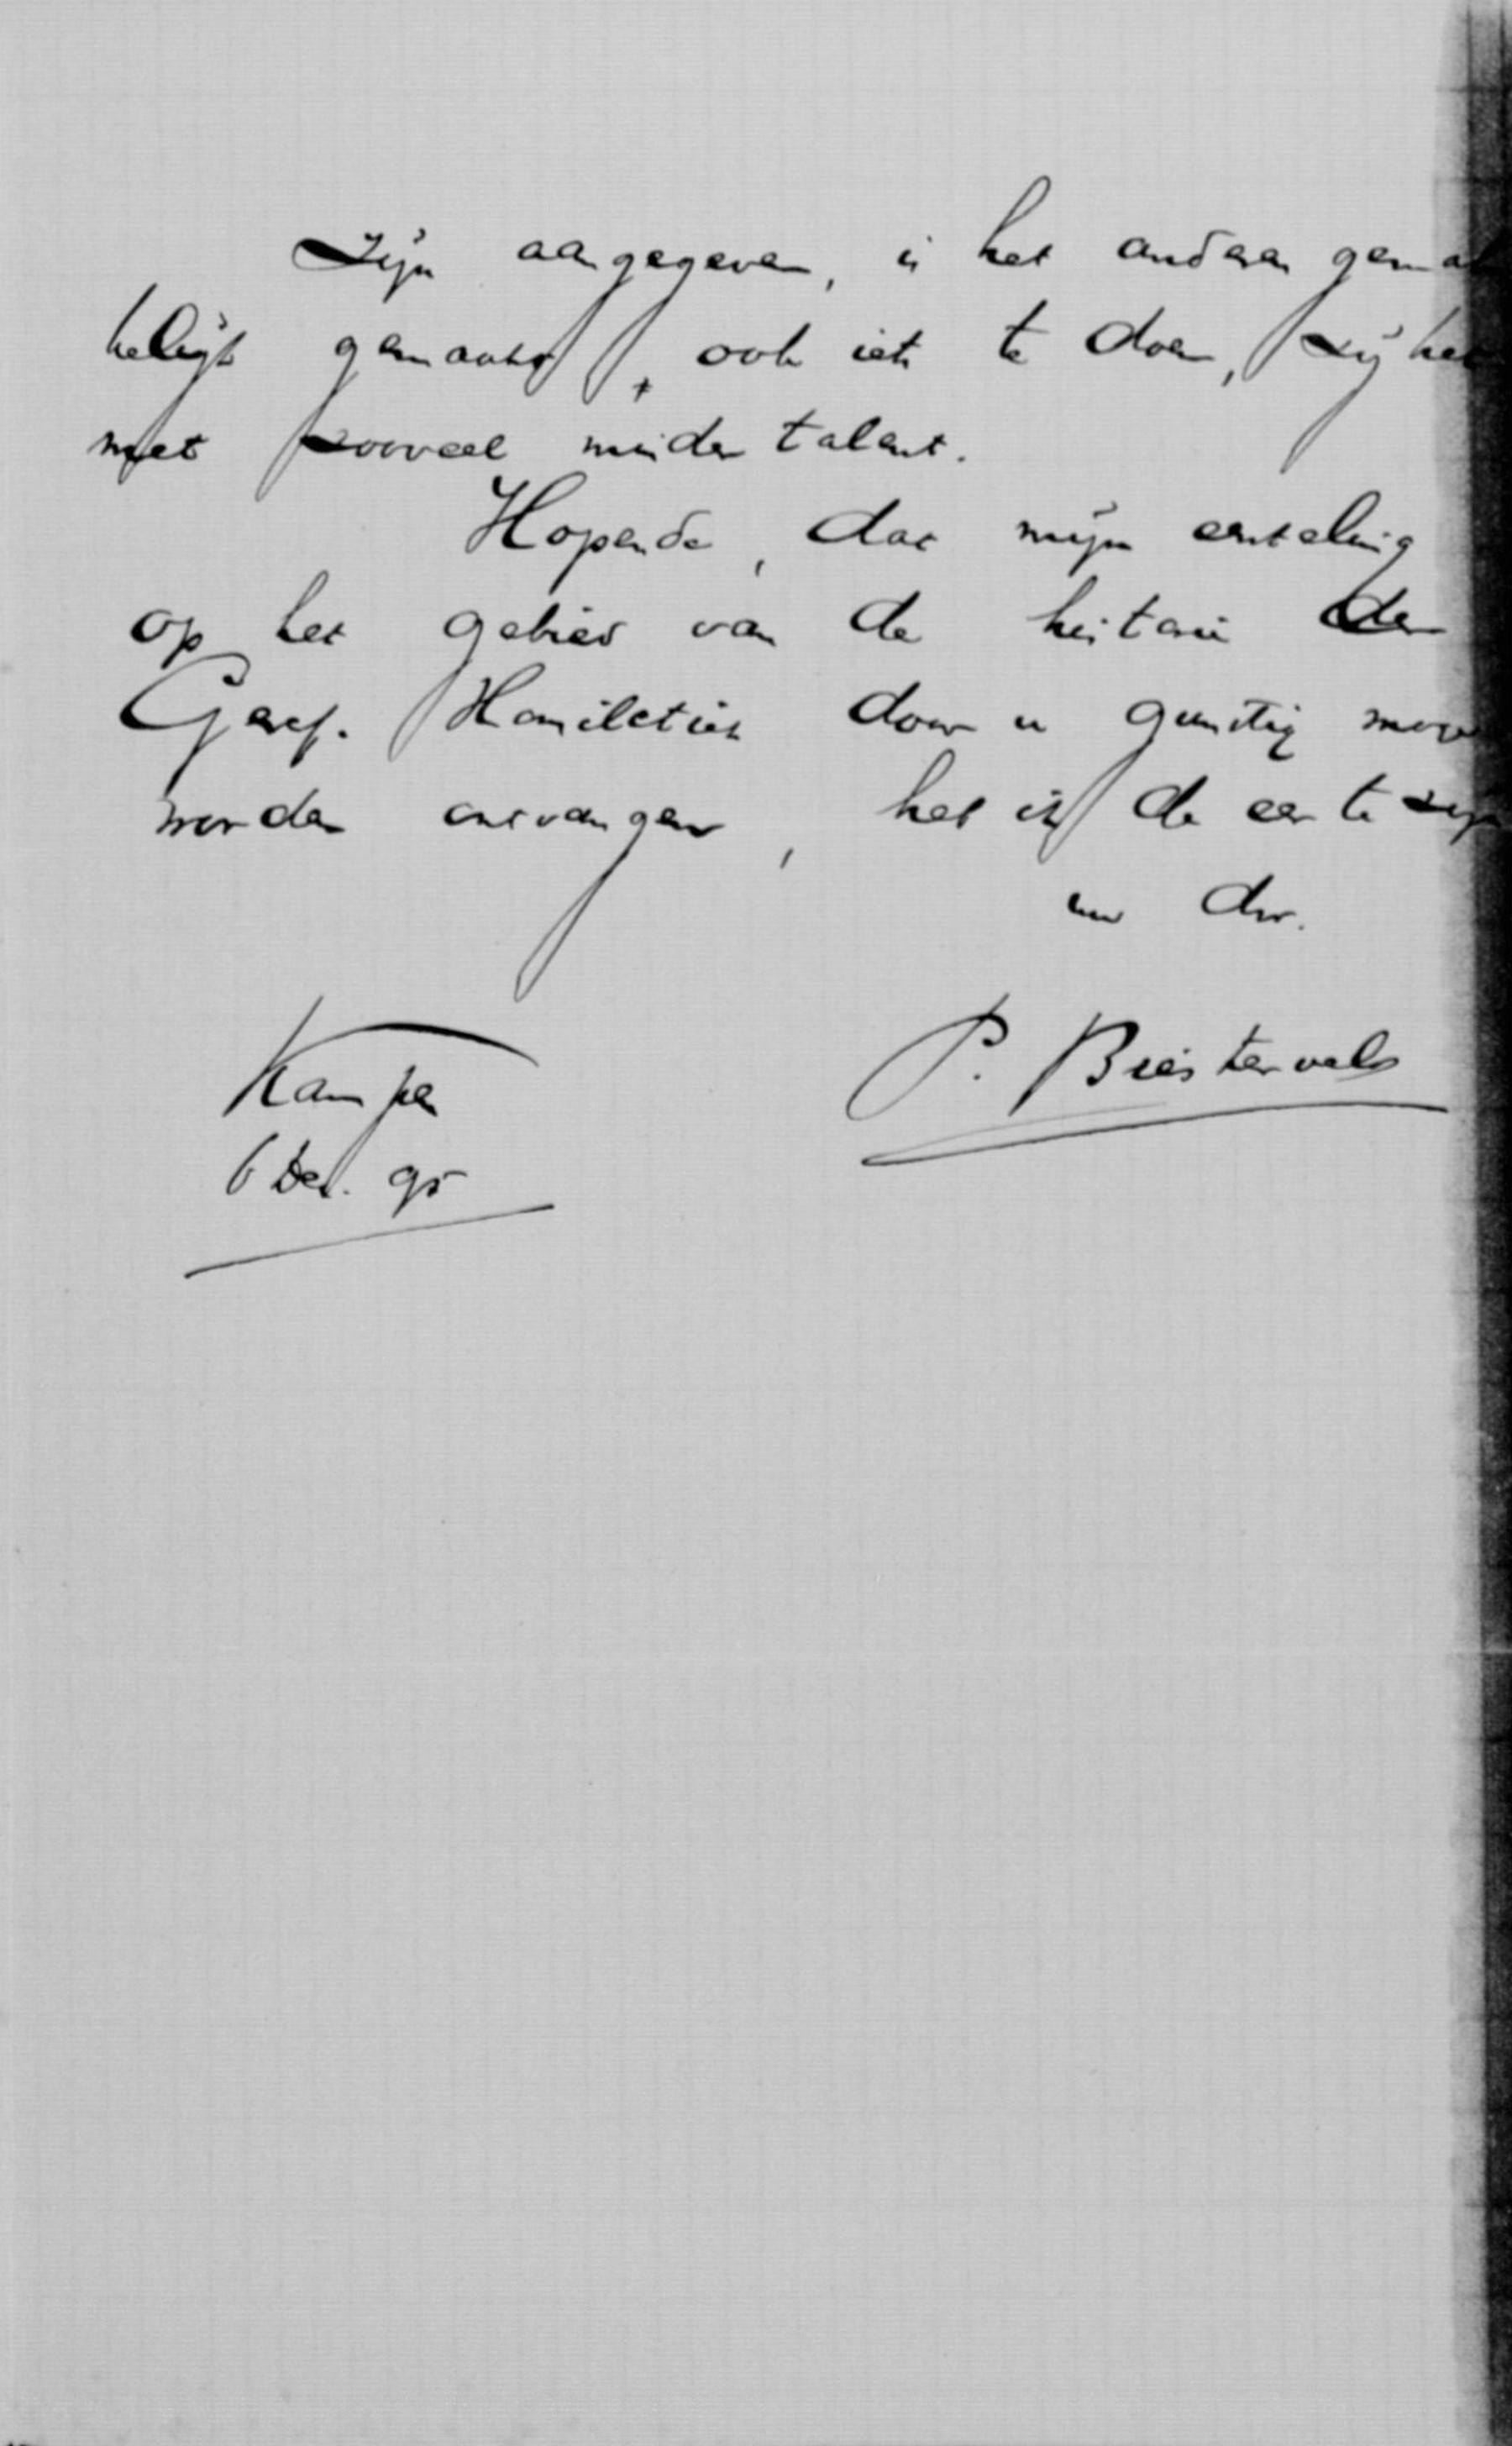 zijn aangegeven, is het anderen gemak
kelijk gemaakt, ook iets te doen, zij het
met zooveel minder talent.
Hopende, dat mijn eersteling
op het gebied van de historie der
Geref. Homiletiek door u gunstig moge
worden ontvangen, heb ik de eer te zijn
uw dw.
P. Biesterveld
Kampen
6 Dec. 95